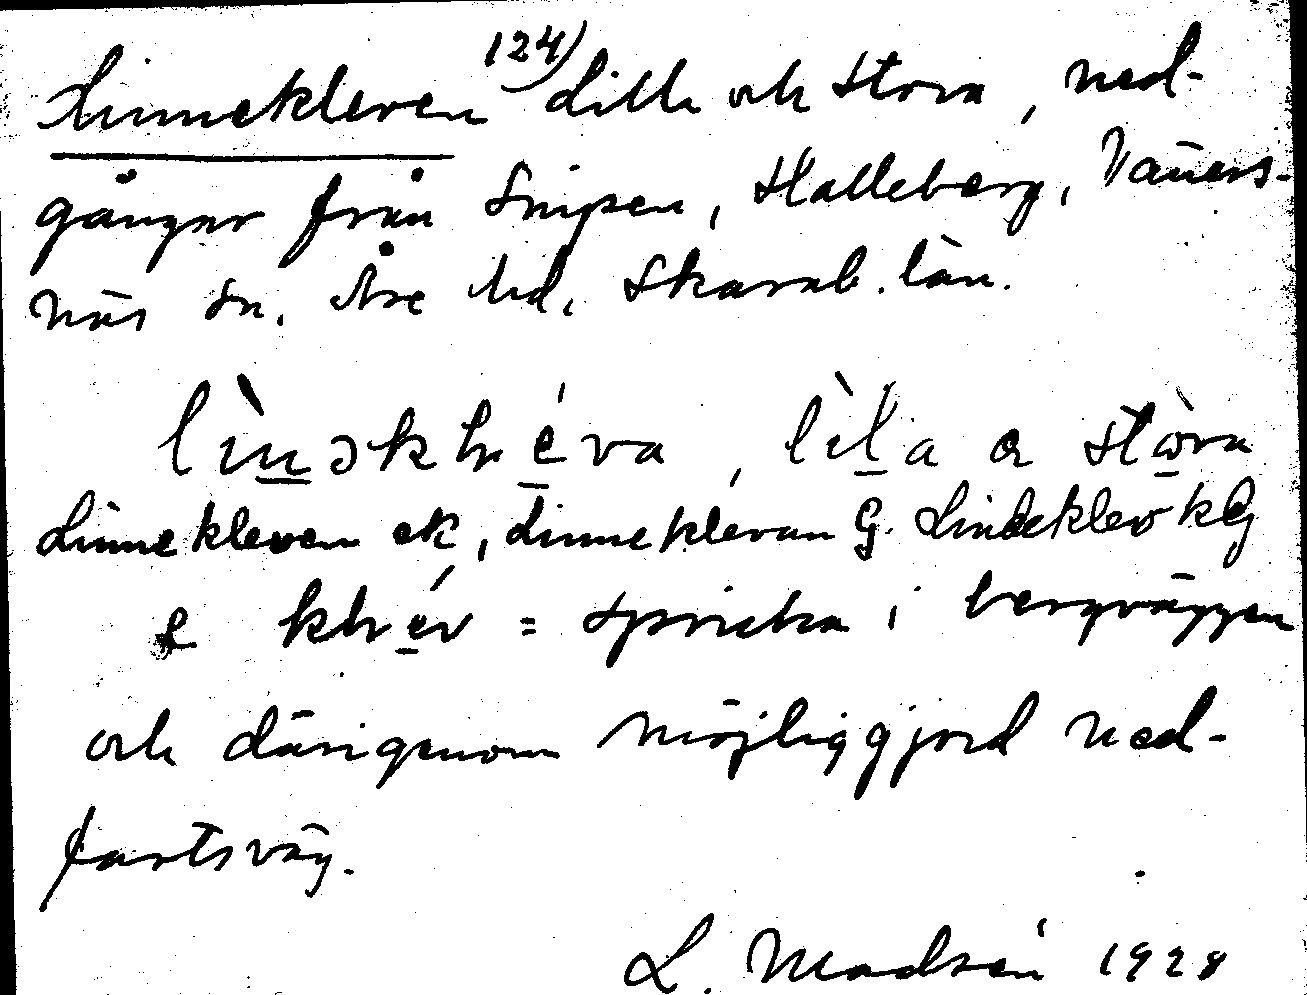 Linnekleven 124) Lilla och Stora, ned-
gångar från Snipen, Halleberg, Väners-
näs sn. Åse hd, Skarab. län.
lìnəkléva, lìla a stòra
Linnekleven ek, Linneklevan G. Lindeklev
klév = spricka i bergväggen
och därigenom möjliggjord ned-
fartsväg.
L. Madsén 1928